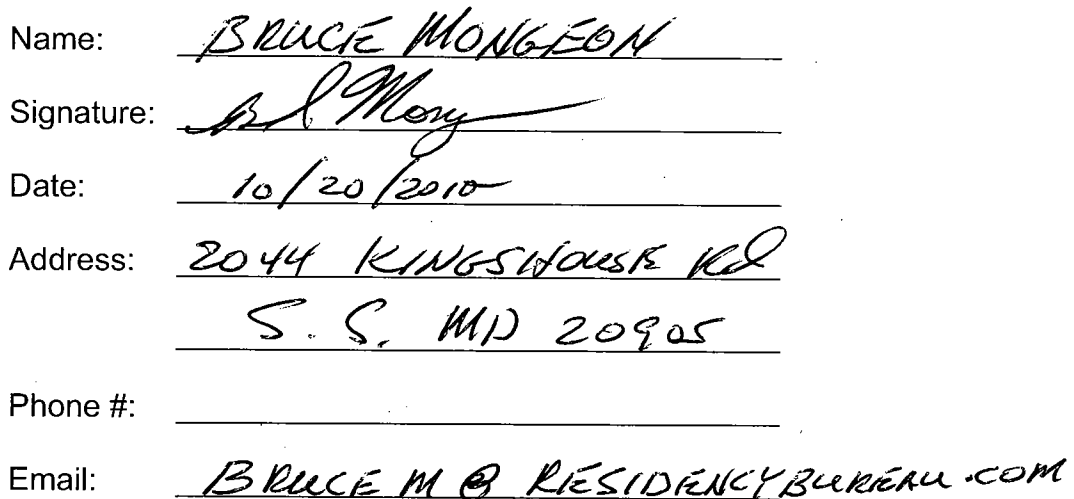 Name: BRUCE MONGEON
Signature: B Mong
Date: 10/20/2010
Address: 2044 KINGSHOUSE Rd
S. S. MD 20905
Phone #:
Email: BRUCE M @ RESIDENCYBUREAU.COM